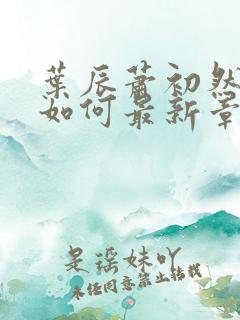 葉辰蕭初然
如何最新章
是瑶妹吖
未经同意禁止转载